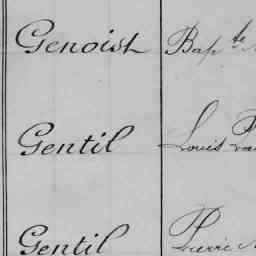 Genoist Bapte
Gentil Louis
Gentil Pierre